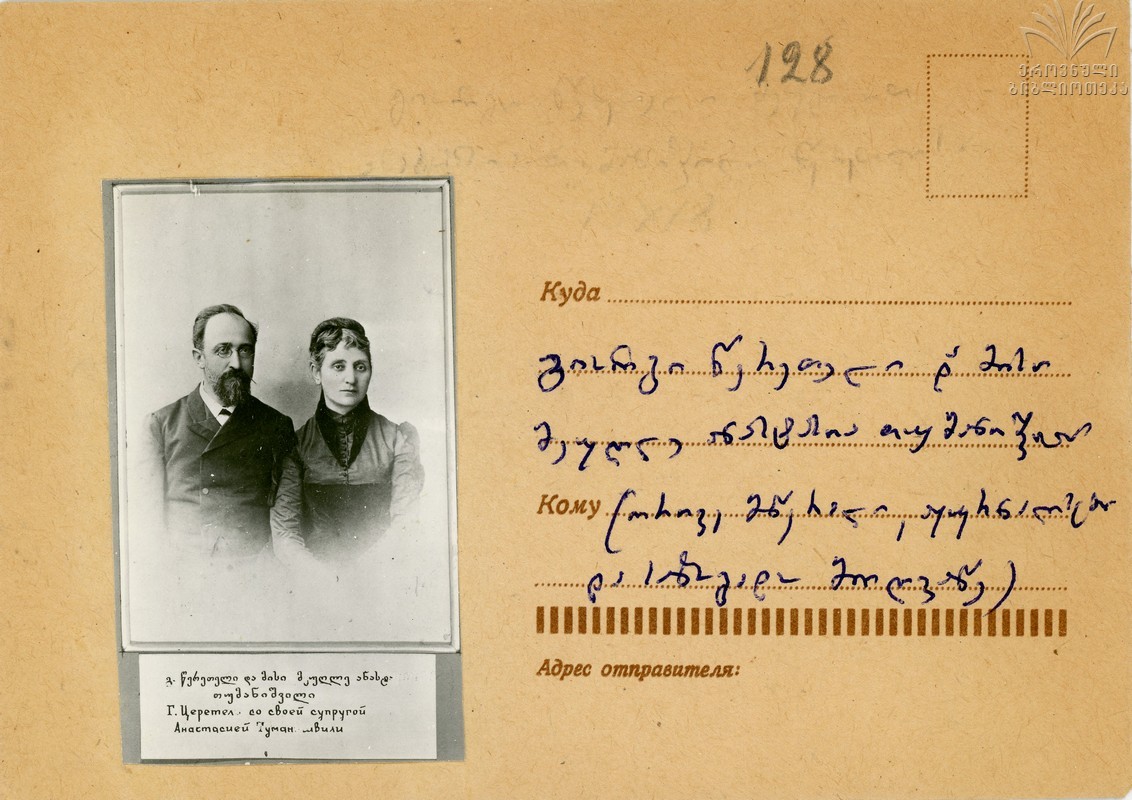 128
ეროვნული
ბიბლიოთეკა
Куда
გიორგი წერეთელი და მისი
მეუღლე ანასტასია თუმანიშვილი
Кому (ორივე მწერალი, ჟურნალისტი
და საზოგადო მოღვაწე)
Адрес отправителя:
გ. წერეთელი და მისი მეუღლე ანასტ.
თუმანიშვილი
Г. Церетел со своей супругой
Анастасией Туман швили